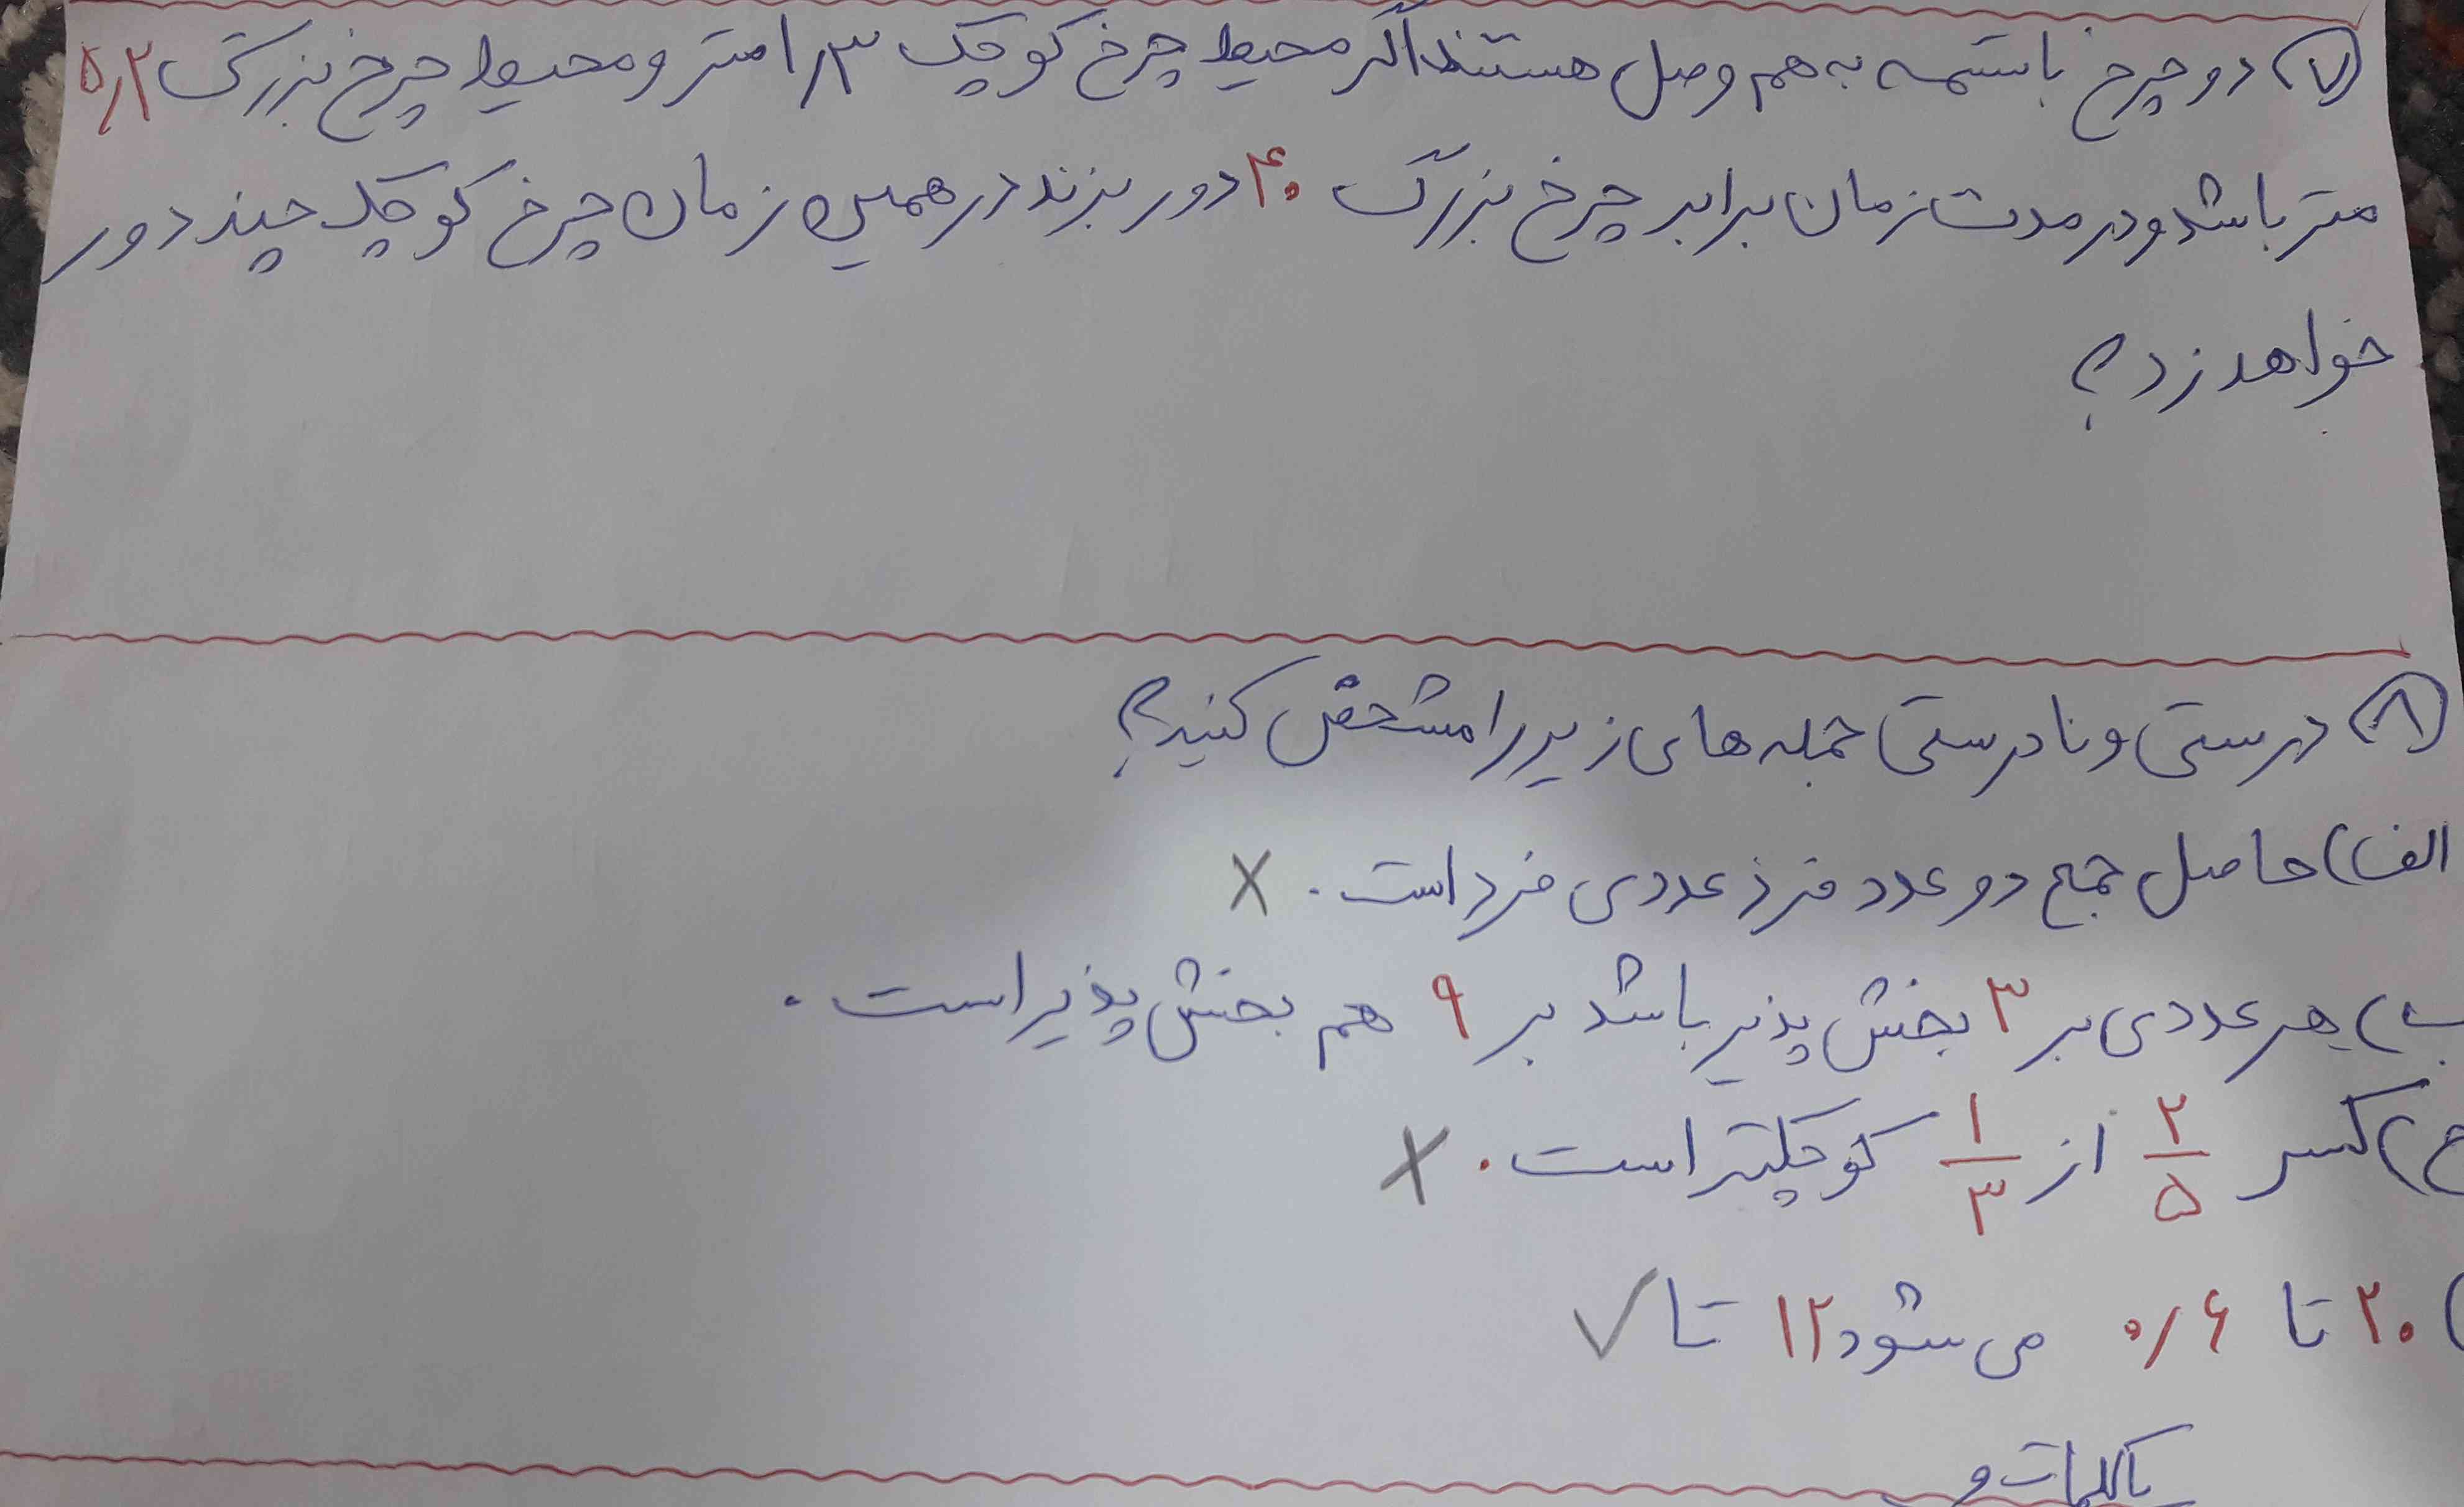 ۷) دو چرخ با تسمه به هم وصل هستند اگر محیط چرخ کوچک ۱٫۳ متر و محیط چرخ بزرگ ۵٫۲
متر باشد و در مدت زمان برابر چرخ بزرگ ۴۰ دور بزند در همین زمان چرخ کوچک چند دور
خواهد زد؟
۸) درستی و نادرستی جمله های زیر را مشخص کنید؟
الف) حاصل جمع دو عدد فرد عددی فرد است. ×
ب) هر عددی بر ۳ بخش پذیر باشد بر ۹ هم بخش پذیر است.
ج) کسر ۲/۵ از ۱/۳ کوچکتر است. ×
) ۲۰ تا ۰٫۶ می شود ۱۲ تا ✓
با کلمات و